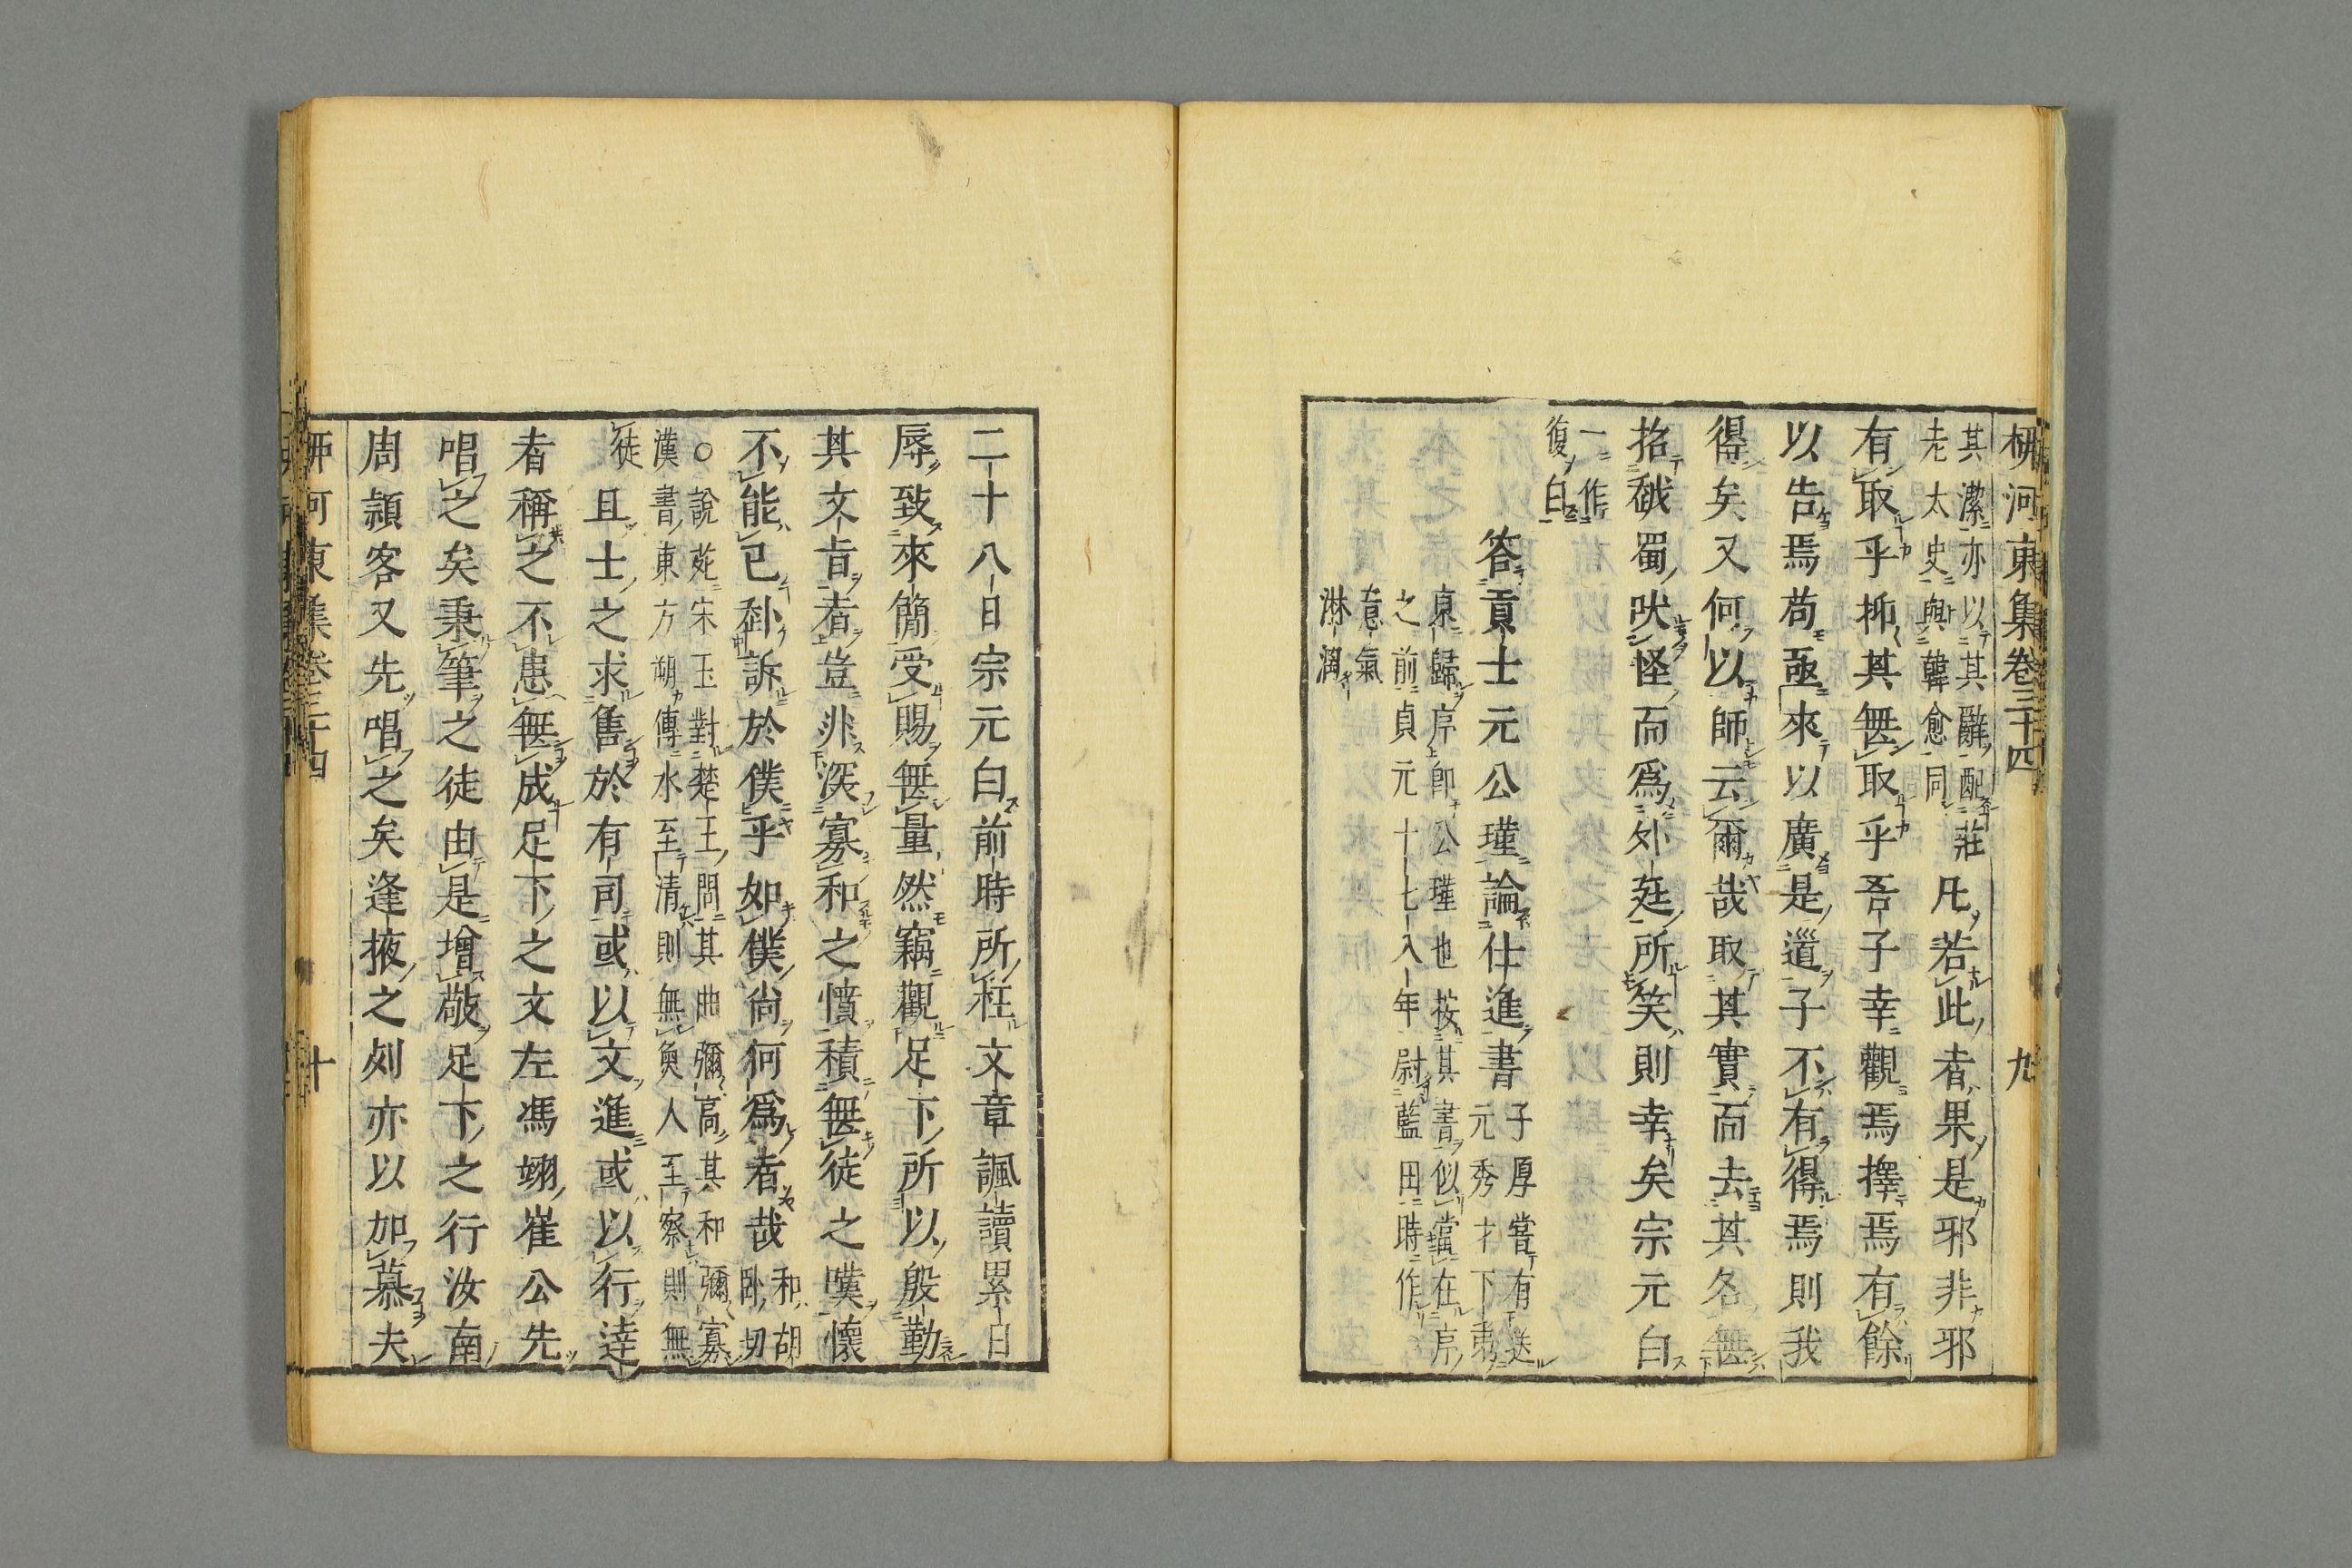 柳河東集卷三十四 九
其潔亦以其辭配莊
老太史與韓愈同
凡若此者果是邪非邪
有取乎抑其無取乎吾子幸觀焉擇焉有餘
以告焉苟亟來以廣是道子不有得焉則我
得矣又何以師云爾哉取其實而去其名無
招越蜀吠怪而爲外廷所笑則幸矣宗元白
一作
復白
答貢士元公瑾論仕進書
子厚嘗有送
元秀才下第
東歸序即公瑾也按其書似當在序
之前貞元十七八年尉藍田時作
意氣
淋漓
二十八日宗元白前時所枉文章諷讀累日
辱致來簡受賜無量然竊觀足下所以殷勤
其文旨者豈非深寡和之憤積無徒之嘆懷
不能已赴訴於僕乎如僕尚何爲者哉
和胡
卧切
○說苑宋玉對楚王問其曲彌高其和彌寡
漢書東方朔傳水至清則無魚人至察則無
徒
且士之求售於有司或以文進或以行達
者稱之不患無成足下之文左馮翊崔公先
唱之矣秉筆之徒由是增敬足下之行汝南
周潁客又先唱之矣逢掖之列亦以加慕夫
柳河東集卷三十四 十